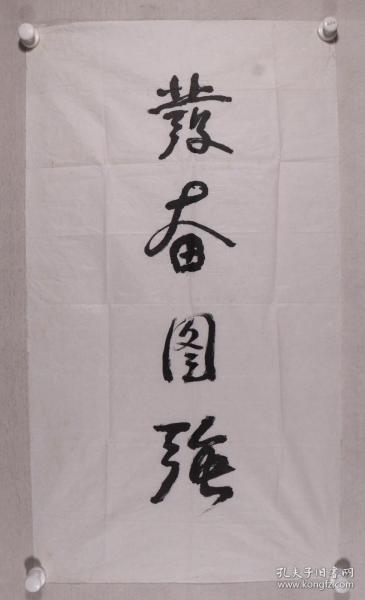 發奋图强
孔夫子旧书网
www.kongfz.com